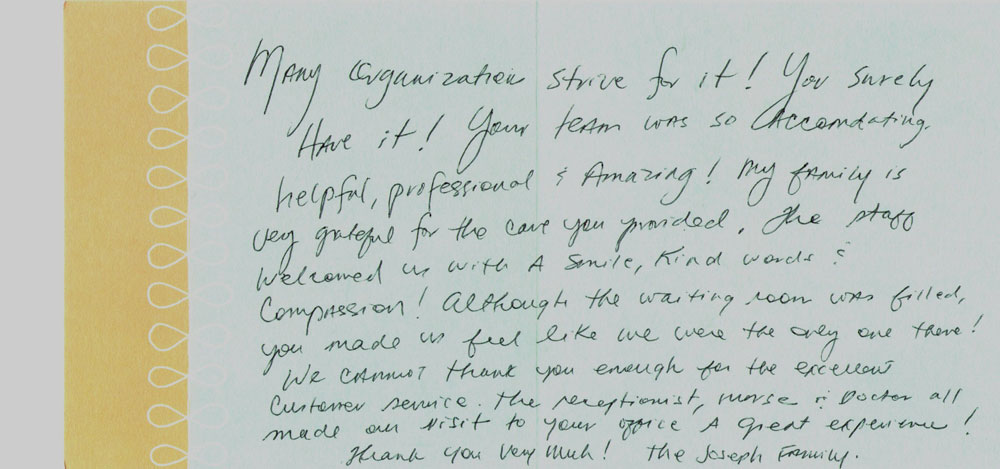 Many Organization strive for it! You surely
Have it! Your team was so Accomdating,
helpful, professional & Amazing! My family is
very grateful for the care you provided. The staff
welcomed us with A smile, Kind words &
Compassion! Although the waiting room was filled,
you made us feel like we were the only one there!
We cannot thank you enough for the excellent
Customer service. The receptionist, nurse & Doctor all
made our visit to your office A great experience!
Thank you very much! The Joseph Family.